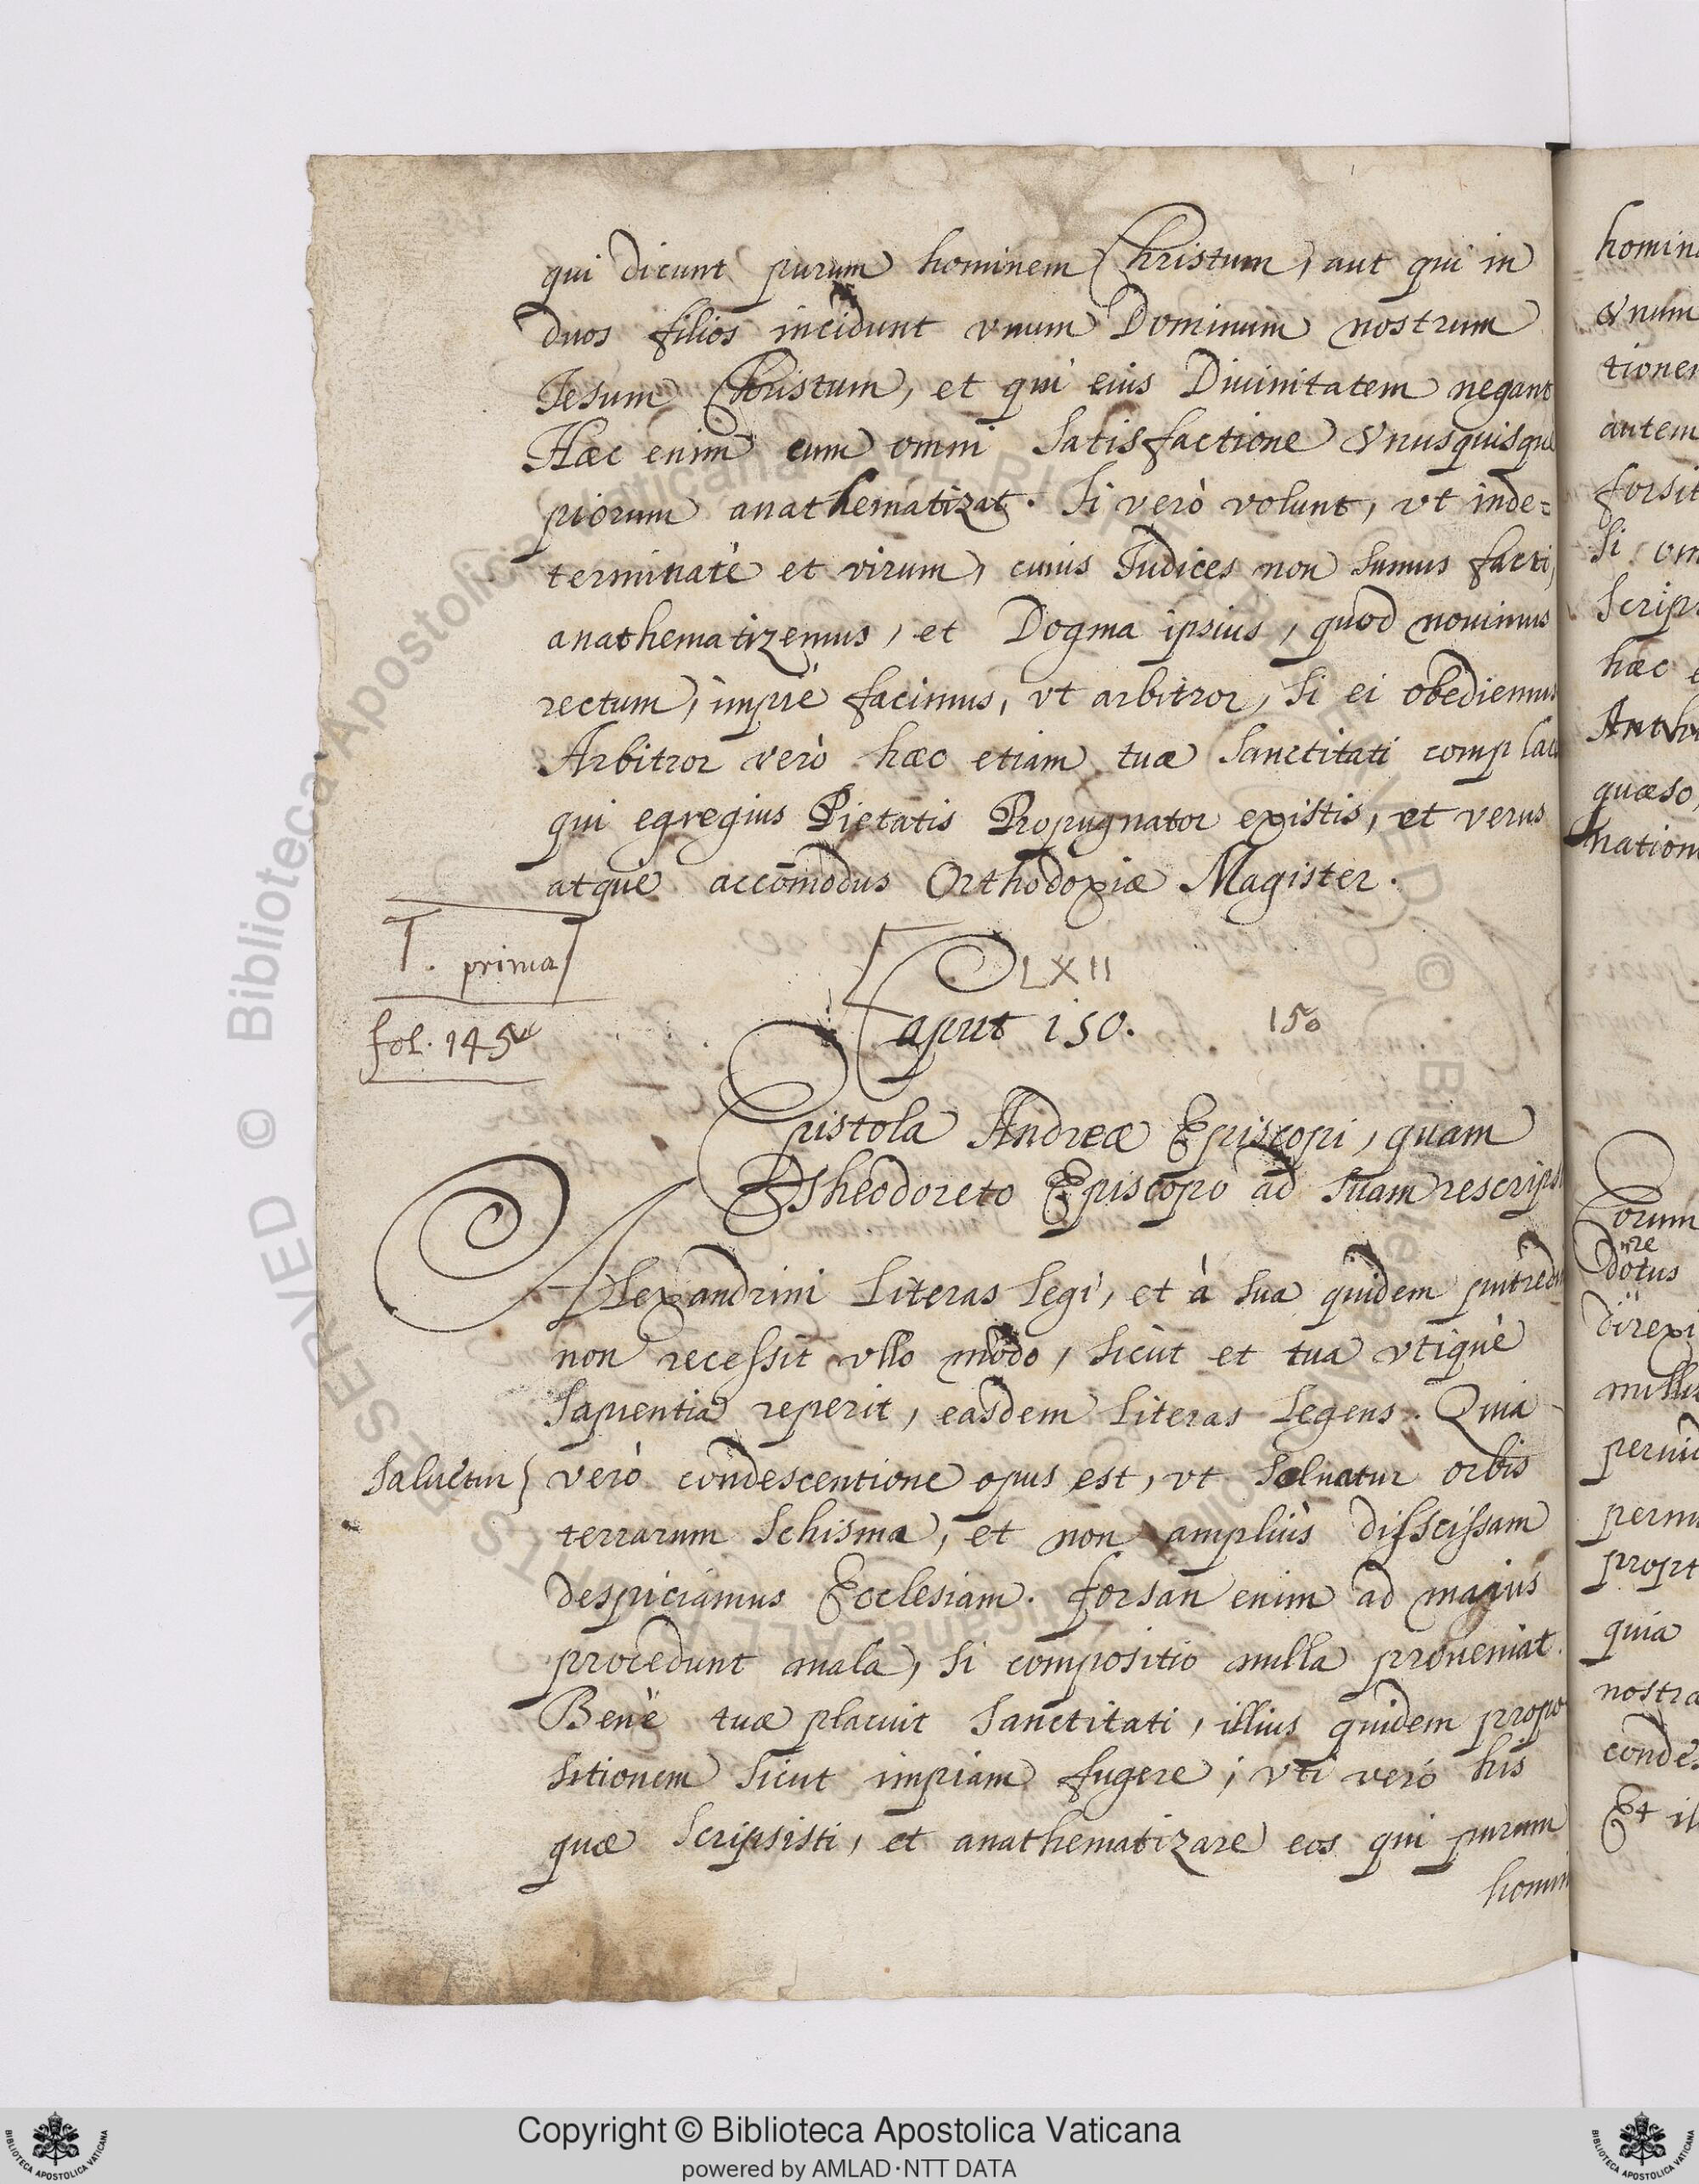 qui dicunt purum hominem Christum, aut qui in
duos filios incidunt vnum Dominum nostrum
Iesum Christum, et qui eius Diuinitatem negant
Hæc enim cum omni satisfactione vnusquisque
piorum anathematizat. Si verò volunt, vt inde=
terminatè et virum, cuius Iudices non sumus facti,
anathematizemus, et Dogma ipsius, quod nouimus
rectum, impiè facimus, vt arbitror, si ei obediemus
Arbitror verò hæc etiam tuæ Sanctitati compla
qui egregius Pietatis Propugnator existis, et verus
atque accōmodus Orthodoxiæ Magister.
T. prima
fol. 145
LXII
Caput 150.
150
Epistola Andreæ Episcopi, quam
Theodoreto Episcopo ad suam rescrips
Alexandrini Literas legi, et à sua quidem putred
non recessit vllo modo, sicut et tua vtique
Sapientia reperit, easdem literas legens. Quia
saluetur} verò condescentione opus est, vt soluatur orbis
terrarum Schisma, et non ampliùs disscissam
despiciamus Ecclesiam. forsan enim ad maius
procedunt mala, si compositio nulla proueniat.
Benè tuæ placuit Sanctitati, illius quidem propo
sitionem sicut impiam fugere, vti verò his
quæ scripsisti, et anathematizare eos qui purum
homin
homin
vnum
tionem
autem
forsit
Si om
Scrip
hæc
quæso,
nation
Eorum
re
dotus
direxi
nullu
permu
propt
quia
nostra
condes
Et il
© Biblioteca Apostolica Vaticana
Copyright © Biblioteca Apostolica Vaticana
powered by AMLAD·NTT DATA
BIBLIOTECA APOSTOLICA VATICANA
BIBLIOTECA APOSTOLICA VATICANA